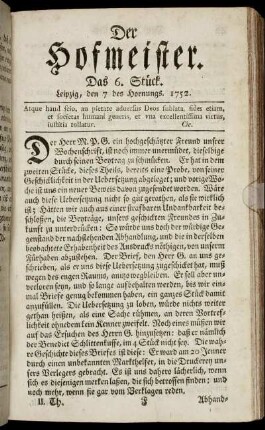 Der
Hofmeister.
Das 6. Stück.
Leipzig, den 7 des Hornungs. 1752.
Atque haud scio, an pietate aduersus Deos sublata, fides etiam,
et societas humani generis, et vna excellentissima virtus,
iustitia tollatur. Cic.
Der Herr M. P. G. ein hochgeschätzter Freund unsrer
Wochenschrift, ist noch immer unermüdet, dieselbige
durch seinen Beytrag zu schmücken. Er hat in dem
zweiten Stücke, dieses Theils, bereits eine Probe, von seiner
Geschicklichkeit in der Uebersetzung abgelegt; und vorige Wo-
che ist uns ein neuer Beweis davon zugesendet worden. Wäre
auch diese Uebersetzung nicht so gut gerathen, als sie wirklich
ist: Hätten wir auch aus einer strafbaren Undankbarkeit be-
schlossen, die Beyträge, unsers geschickten Freundes in Zu-
kunft zu unterdrücken: So würde uns doch der würdige Ge-
genstand der nachstehenden Abhandlung, und die in derselben
beobachtete Erhabenheit des Ausdrucks nöthigen, von unserm
Vorhaben abzustehen. Der Brief, den Herr G. an uns ge-
schrieben, als er uns diese Uebersetzung zugeschicket hat, muß
wegen des engen Raums, aussen bleiben. Er soll aber un-
verloren seyn, und so lange aufbehalten werden, bis wir ein-
mal Briefe genug bekommen haben, ein ganzes Stück damit
anzufüllen. Die Uebersetzung zu loben, würde nichts weiter
gethan heißen, als eine Sache rühmen, an deren Vortref-
lichkeit ohnedem kein Kenner zweifelt. Noch eines müssen wir
auf das Ersuchen des Herrn G. hinzusetzen: daß er nämlich
der Benedict Schlittenkuffe, im 4 Stück nicht sey. Die wah-
re Geschichte dieses Briefes ist diese: Er ward am 20 Jenner
durch einen unbekannten Markthelfer, in die Druckerey un-
sers Verlegers gebracht. Es ist uns daher lächerlich, wenn
sich es diejenigen merken lassen, die sich betroffen finden; und
noch mehr, wenn sie gar vom Verklagen reden.
II. Th. F Abhand-